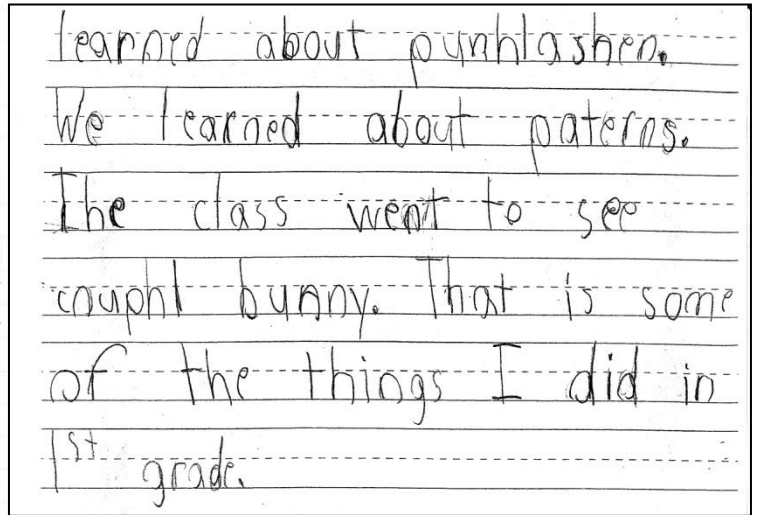 learned about punhlashen.
We learned about paterns.
The class went to see
couphl bunny. That is some
of the things I did in
1st grade.